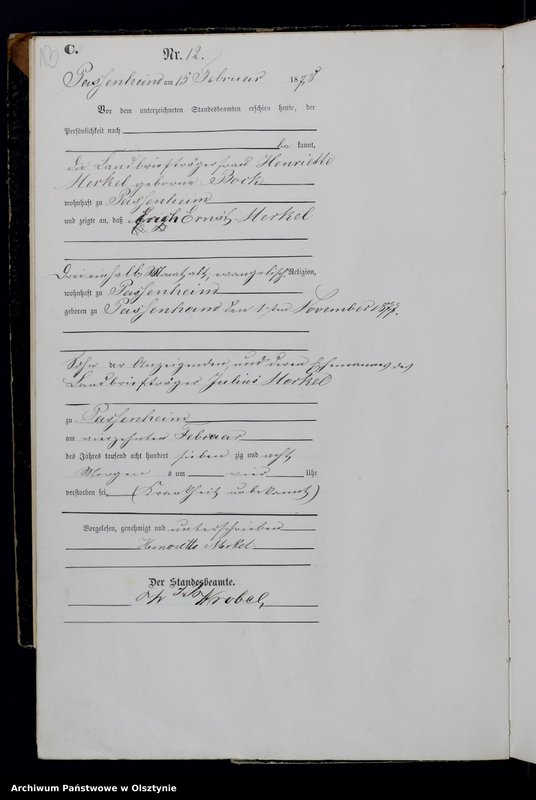 C.
Nr. 12.
Passenheim am 15 Februar 1878
Vor dem unterzeichneten Standesbeamten erschien heute, der
Persönlichkeit nach
be kannt,
die Landbriefträgerfrau Henriette
Merkel geborne Bock
wohnhaft zu Passenheim
und zeigte an, daß Ernst Merkel
Dreieinhalb Monat alt, evangelisch Religion,
wohnhaft zu Passenheim
geboren zu Passenheim den 1sten November 1877.
Sohn der Anzeigenden und deren Ehemannes des
Landbriefträger Julius Merkel
zu Passenheim
am vierzehnten Februar
des Jahres tausend acht hundert sieben zig und acht
Morgen s um vier Uhr
verstorben sei. (Krankheit unbekannt)
Vorgelesen, genehmigt und unterschrieben
Henriette Merkel
Der Standesbeamte.
Archiwum Państwowe w Olsztynie